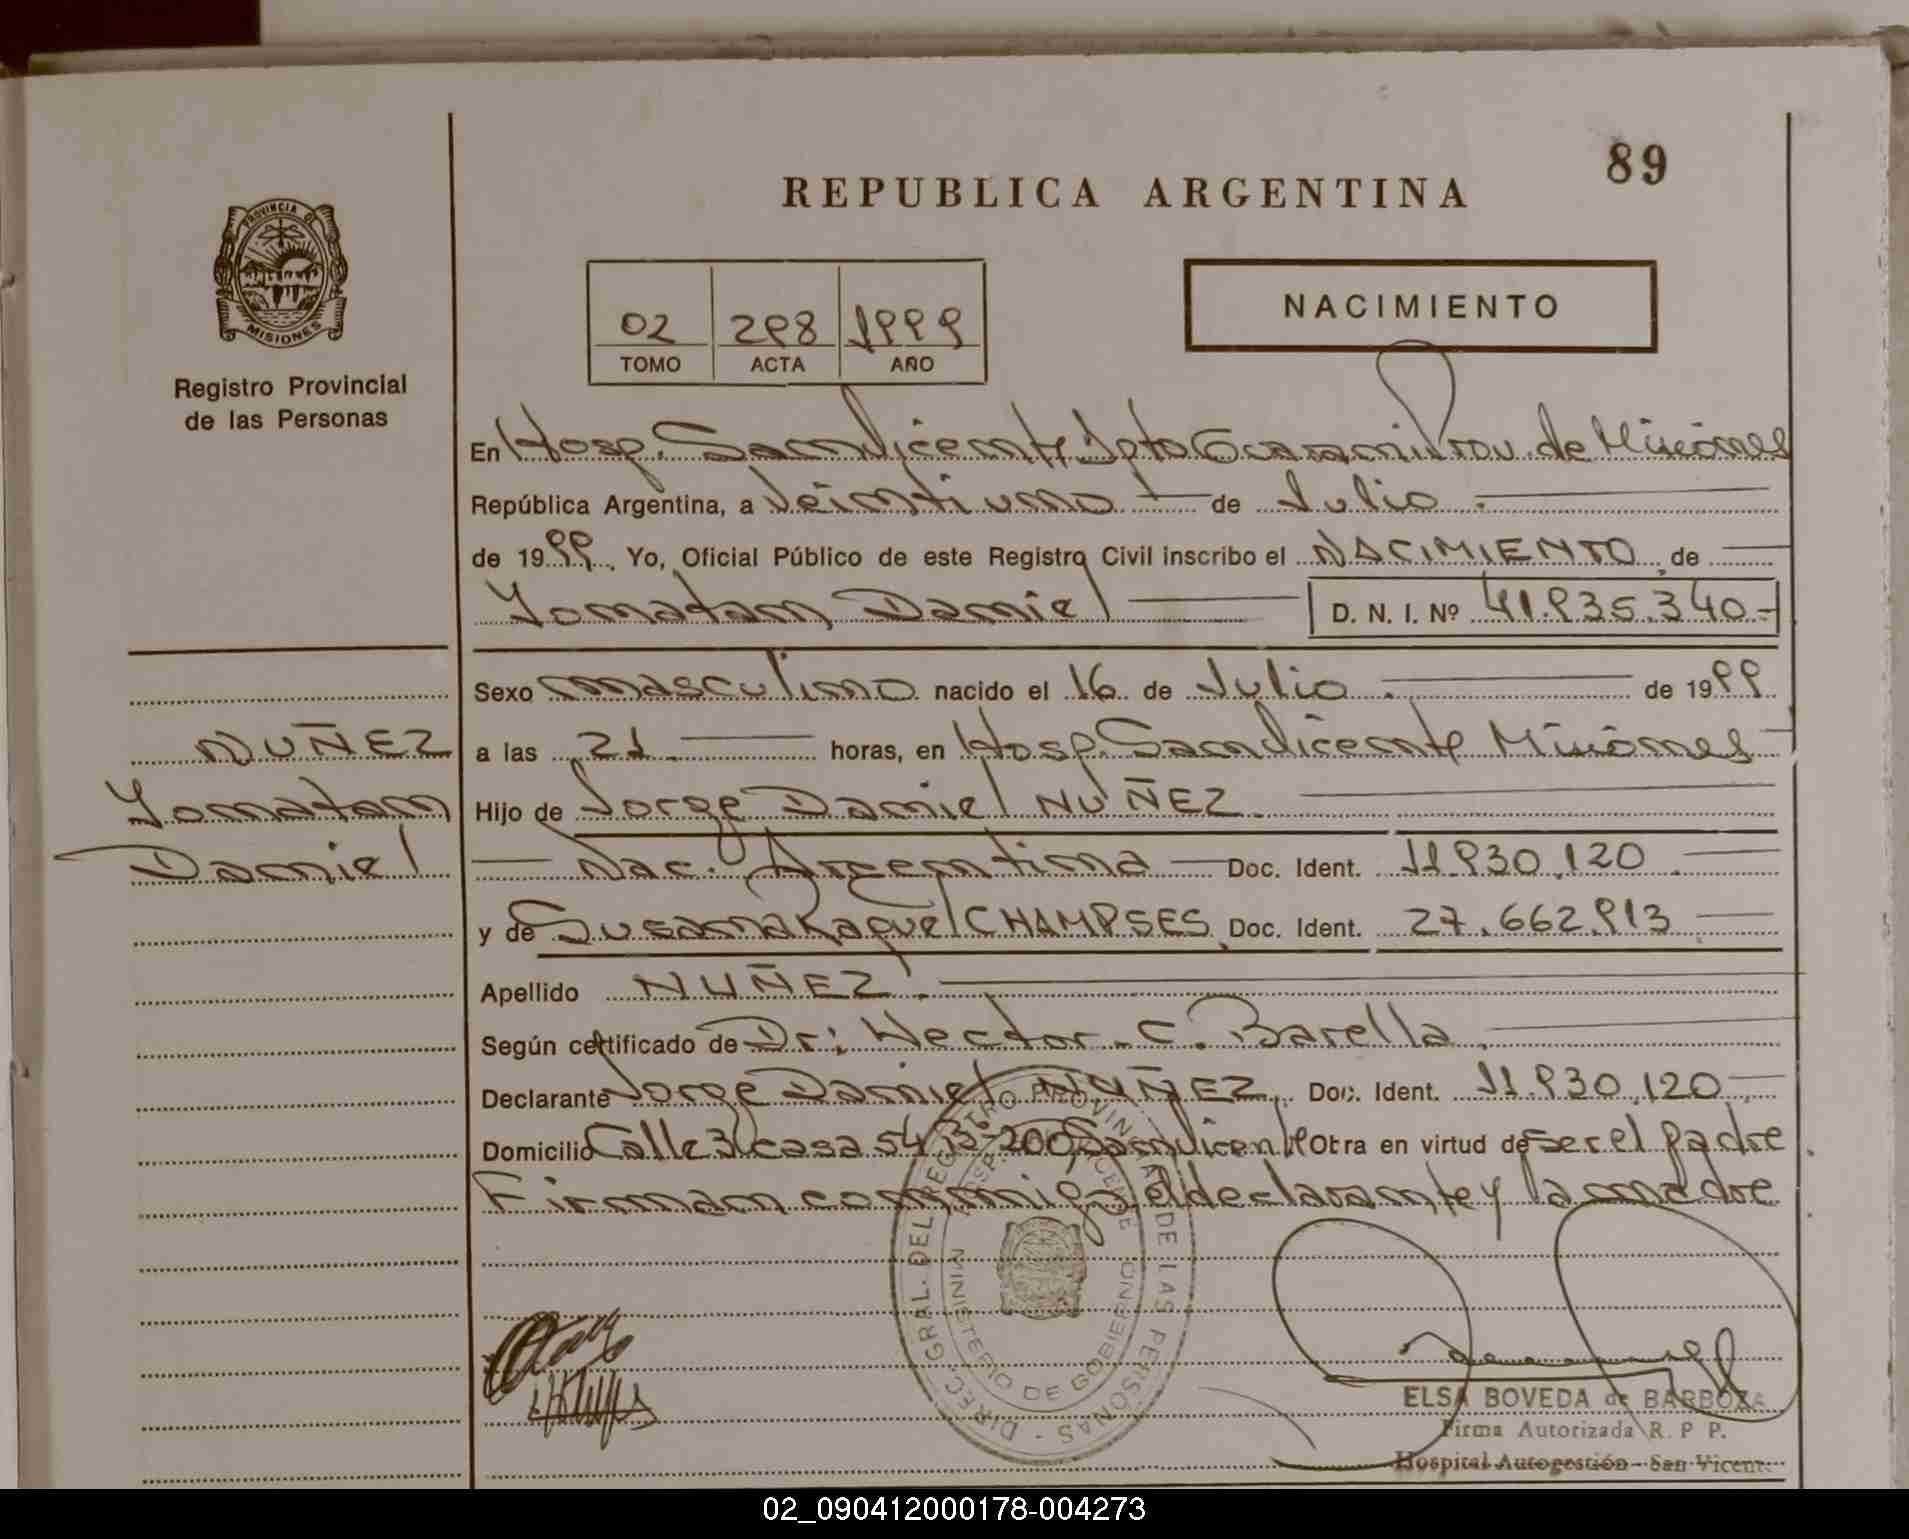 89
REPUBLICA ARGENTINA
PROVINCIA DE
MISIONES
Registro Provincial
de las Personas
02 298 1999
TOMO ACTA AÑO
NACIMIENTO
En Hosp. San Vicente Dpto Guaraní Prov. de Misiones
República Argentina, a Veintiuno de Julio.
de 1999, Yo, Oficial Público de este Registro Civil inscribo el NACIMIENTO de
Yonatan Daniel D. N. I. Nº 41.935.340.-
Sexo masculino nacido el 16 de Julio. de 1999
NUÑEZ
Yonatan
Daniel
a las 21. horas, en Hosp. San Vicente Misiones
Hijo de Jorge Daniel NUÑEZ.
Nac. Argentina Doc. Ident. 11.930.120.
y de Susana Raquel CHAMPSES, Doc. Ident. 27.662.913.
Apellido NUÑEZ.
Según certificado de Dr: Hector. C. Barella.
Declarante Jorge Daniel NUÑEZ, Doc. Ident. 11.930.120.
Domicilio Calle 3 casa 54 Bº 200 San Vicente Otra en virtud de ser el padre.
Firman conmigo, el declarante y la madre
DIREC. GRAL. DEL REGISTRO PROVINCIAL DE LAS PERSONAS -
MINISTERIO DE GOBIERNO
ELSA BOVEDA de BARBOZA
Firma Autorizada R. P P.
Hospital Autogestión - San Vicente
02_090412000178-004273